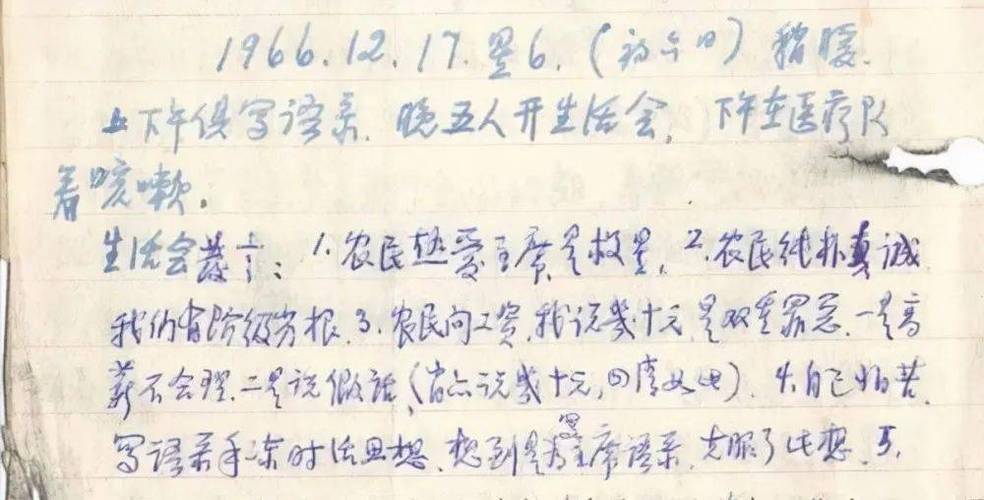 1966.12.17.星6.(初六日)稍暖.
上下午俱写语录.晚五人开生活会,下午在医疗队
看咳嗽.
生活会发言:1.农民热爱主席是救星.2.农民纯朴真诚
我们有阶级劣根.3.农民问工资,我说几十元是双重罪恶.一是高
薪不合理.二是说假话(皆只说几十元,回虑父母).4.自己怕苦.
写语录手冻时活思想.想到是为主席语录,克服了此想.5.